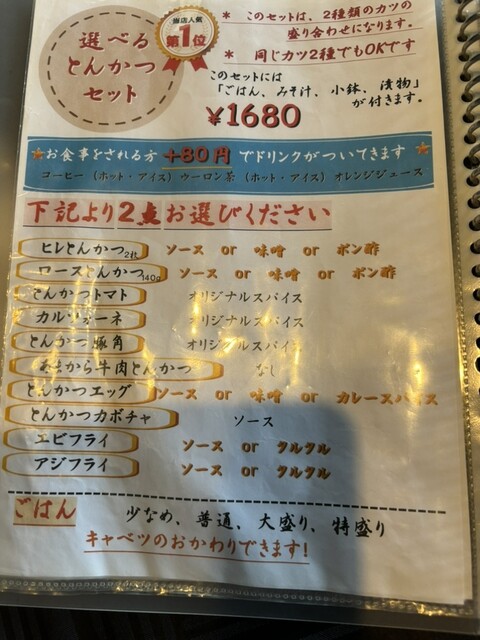 選べる
とんかつ
セット
当店人気
第1位
* このセットは、2種類のカツの
盛り合わせになります。
* 同じカツ2種でもOKです
このセットには
「ごはん、みそ汁、小鉢、漬物」
が付きます。
¥1680
★お食事をされる方 +80円 でドリンクがついてきます★
コーヒー（ホット・アイス）ウーロン茶（ホット・アイス）オレンジジュース
下記より2点お選びください
ヒレとんかつ2枚 ソース or 味噌 or ポン酢
ロースとんかつ140g ソース or 味噌 or ポン酢
とんかつトマト オリジナルスパイス
カルツォーネ オリジナルスパイス
とんかつ豚角 オリジナルスパイス
あまから牛肉とんかつ なし
とんかつエッグ ソース or 味噌 or カレースパイス
とんかつカボチャ ソース
エビフライ ソース or タルタル
アジフライ ソース or タルタル
ごはん 少なめ、普通、大盛り、特盛り
キャベツのおかわりできます!